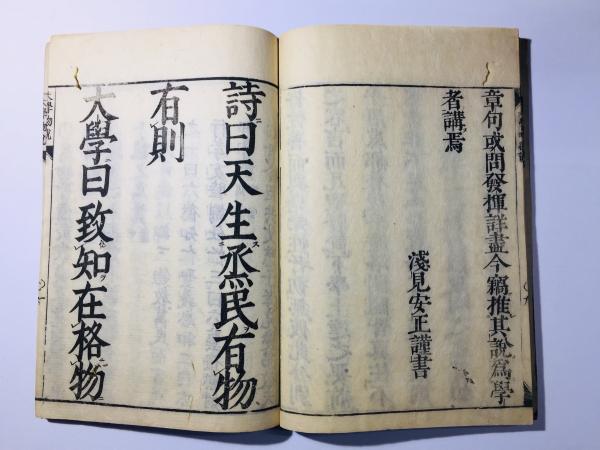 章句或問發揮詳盡今竊推其說爲學
者講焉
淺見安正謹書
詩曰天生烝民有物
有則
大學曰致知在格物